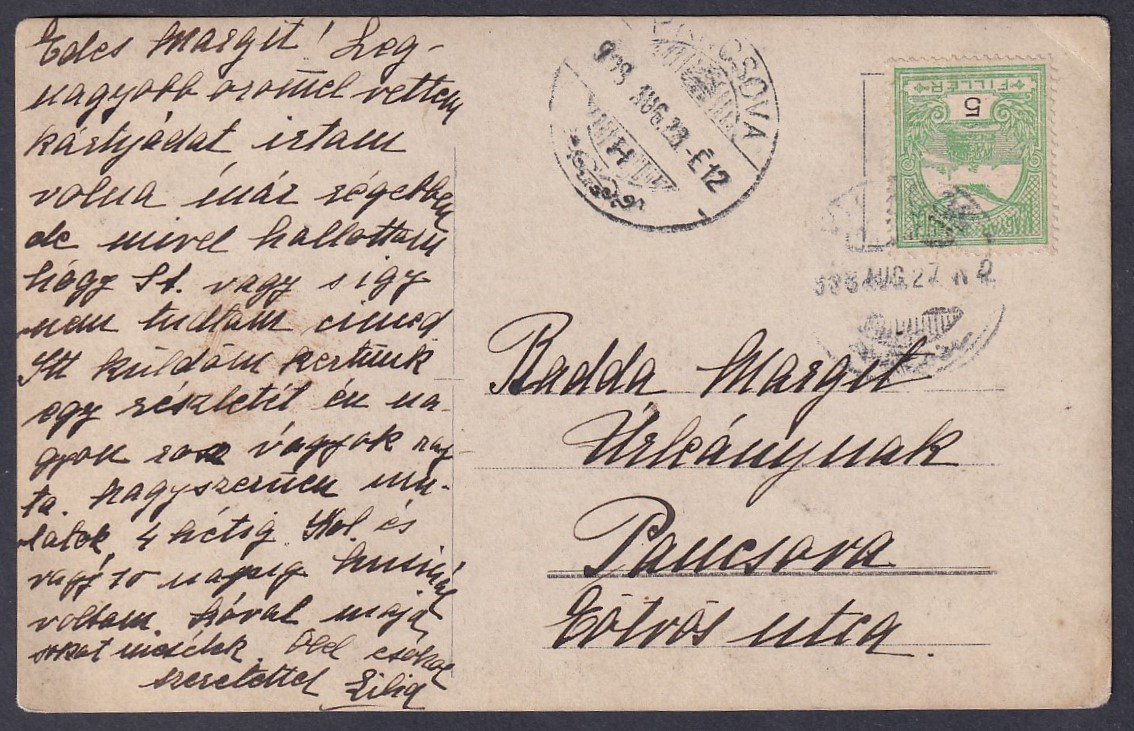 Édes Margit! Leg-
nagyobb örömmel vettem
kártyádat irtam
volna már régebben
de mivel hallottam
hogy St. vagy s igy
nem tudtam cimed
Itt küldöm kertünk
egy részletit én na-
gyon rosz vagyok raj-
ta. Nagyszerüen mu-
latok 4 hétig. Kol. és
vagy 10 napig
voltam. Szóval majd
sokat mesélek. Ölel csokol
szeretettel Lilid
PANCSOVA
908 AUG. 28 - É12
H
FILLÉR
5
MAGYAR
908 AUG. 27 N 2
Badda Margit
Úrleánynak
Pancsova
Eötvös utca.